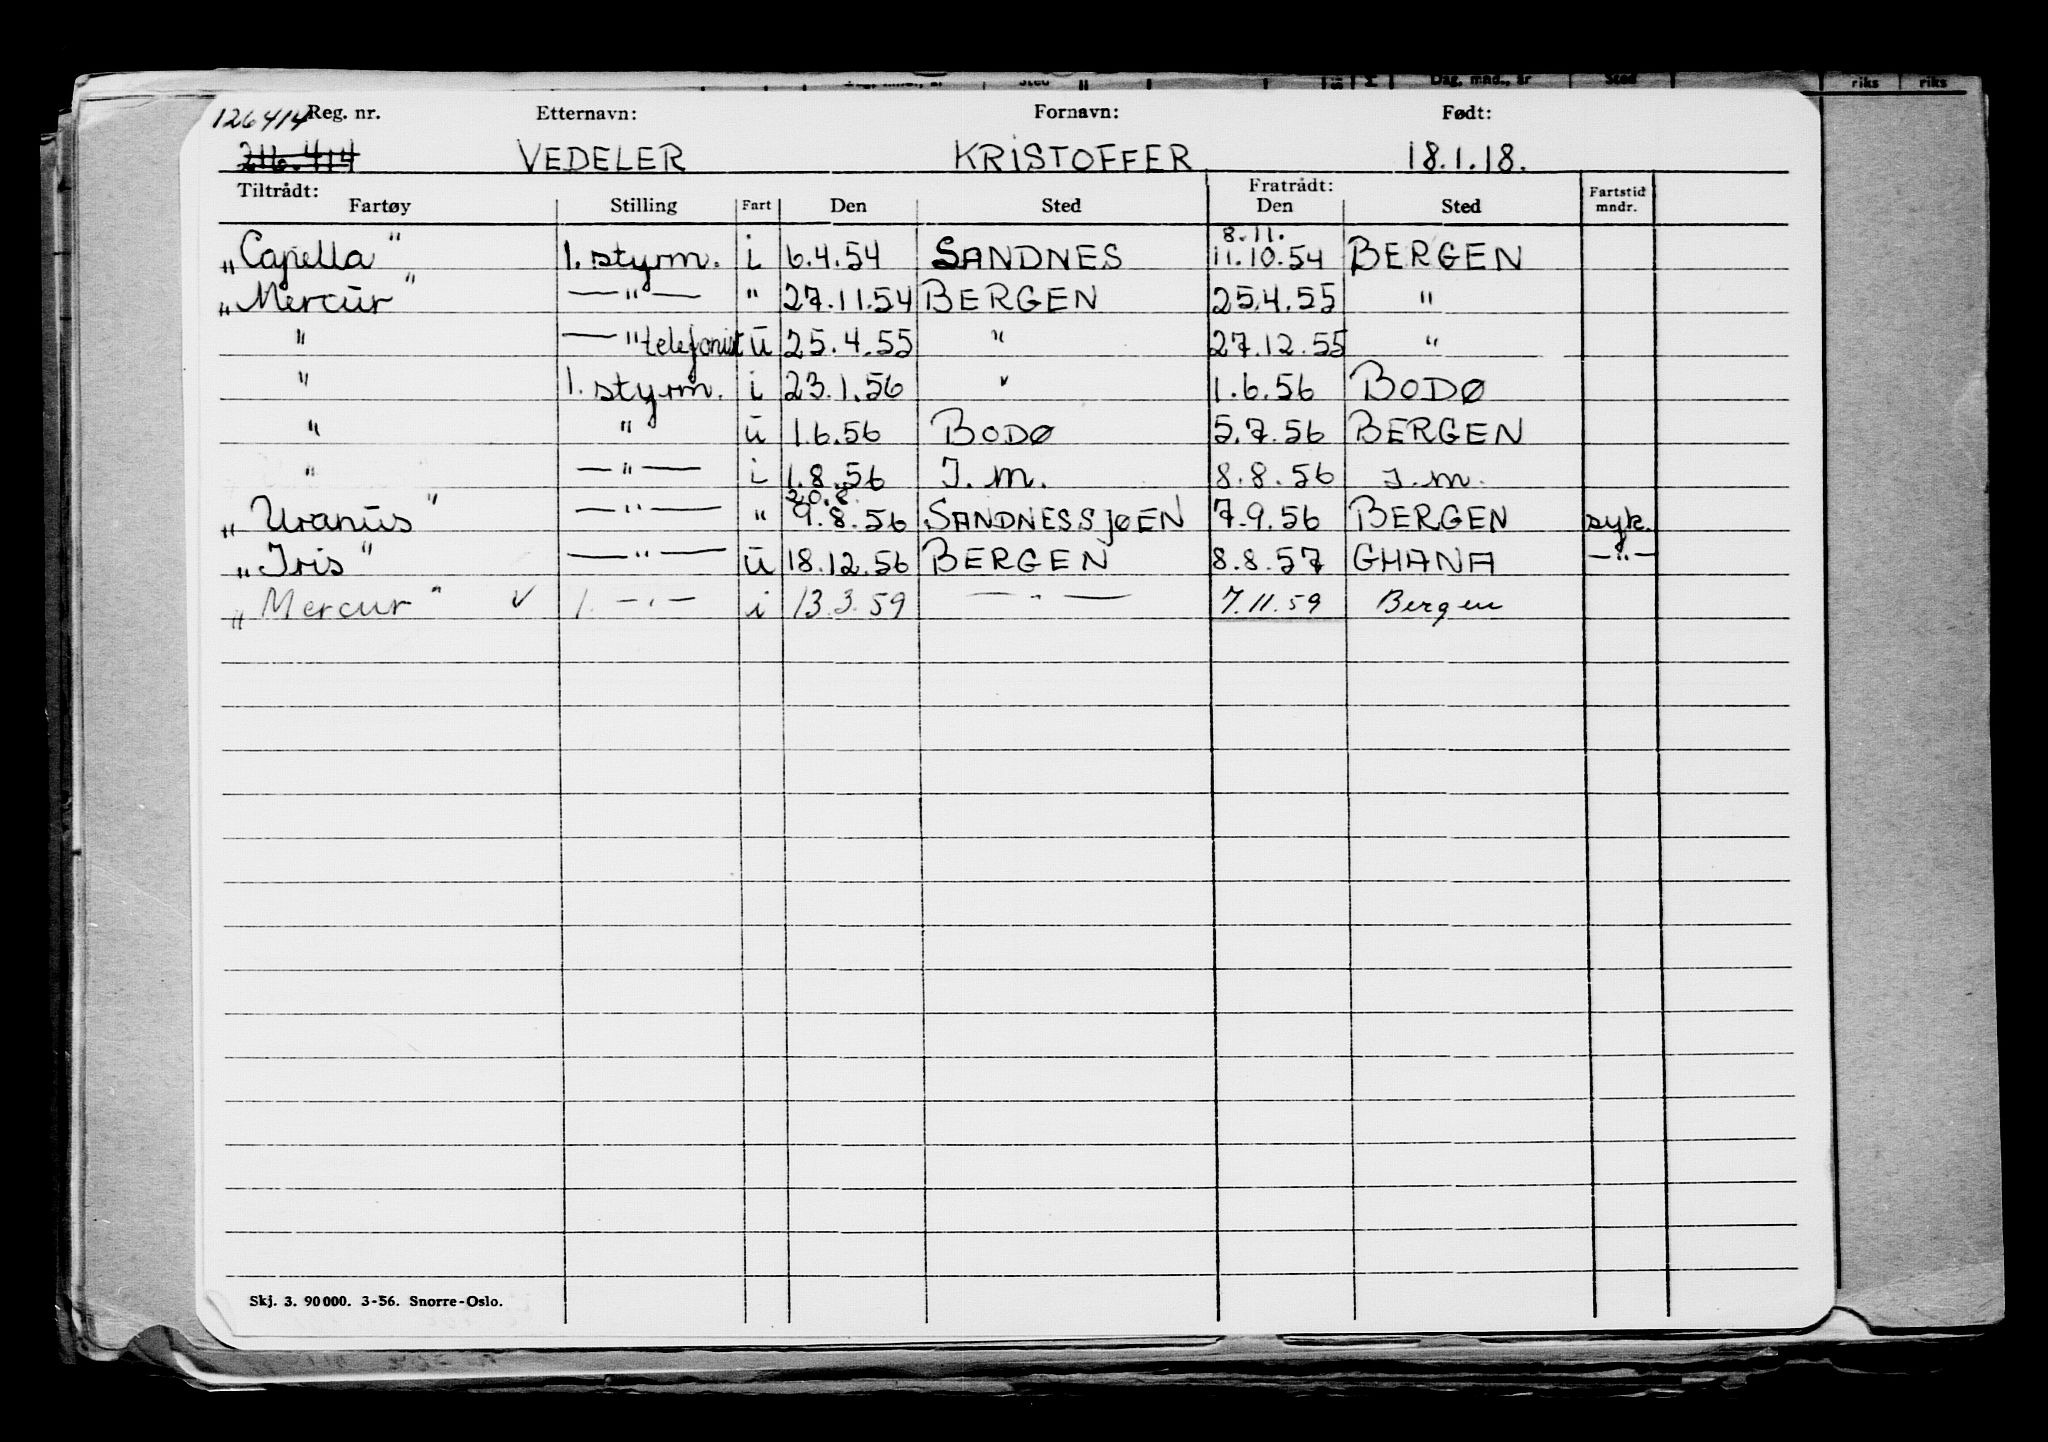 126414 Reg. nr. Etternavn: Fornavn: Født:
216.414 VEDELER KRISTOFFER 18.1.18.
Tiltrådt: Fratrådt:
Fartøy Stilling Fart Den Sted Den Sted Fartstid mndr.
8.11.
„Capella" 1. styrm. i 6.4.54 SANDNES 11.10.54 BERGEN
„Mercur" —"— " 27.11.54 BERGEN 25.4.55 "
" —" telefonist u 25.4.55 " 27.12.55 "
" 1. styrm. i 23.1.56 " 1.6.56 BODØ
" " u 1.6.56 BODØ 5.7.56 BERGEN
" —"— i 1.8.56 I.m. 8.8.56 I.m.
20.8.
„Uranus" —"— " 9.8.56 SANDNESSJØEN 7.9.56 BERGEN syk.
„Iris" —"— u 18.12.56 BERGEN 8.8.57 GHANA —"—
„Mercur" ✓ 1. —"— i 13.3.59 —"— 7.11.59 Bergen
Skj. 3. 90000. 3-56. Snorre-Oslo.